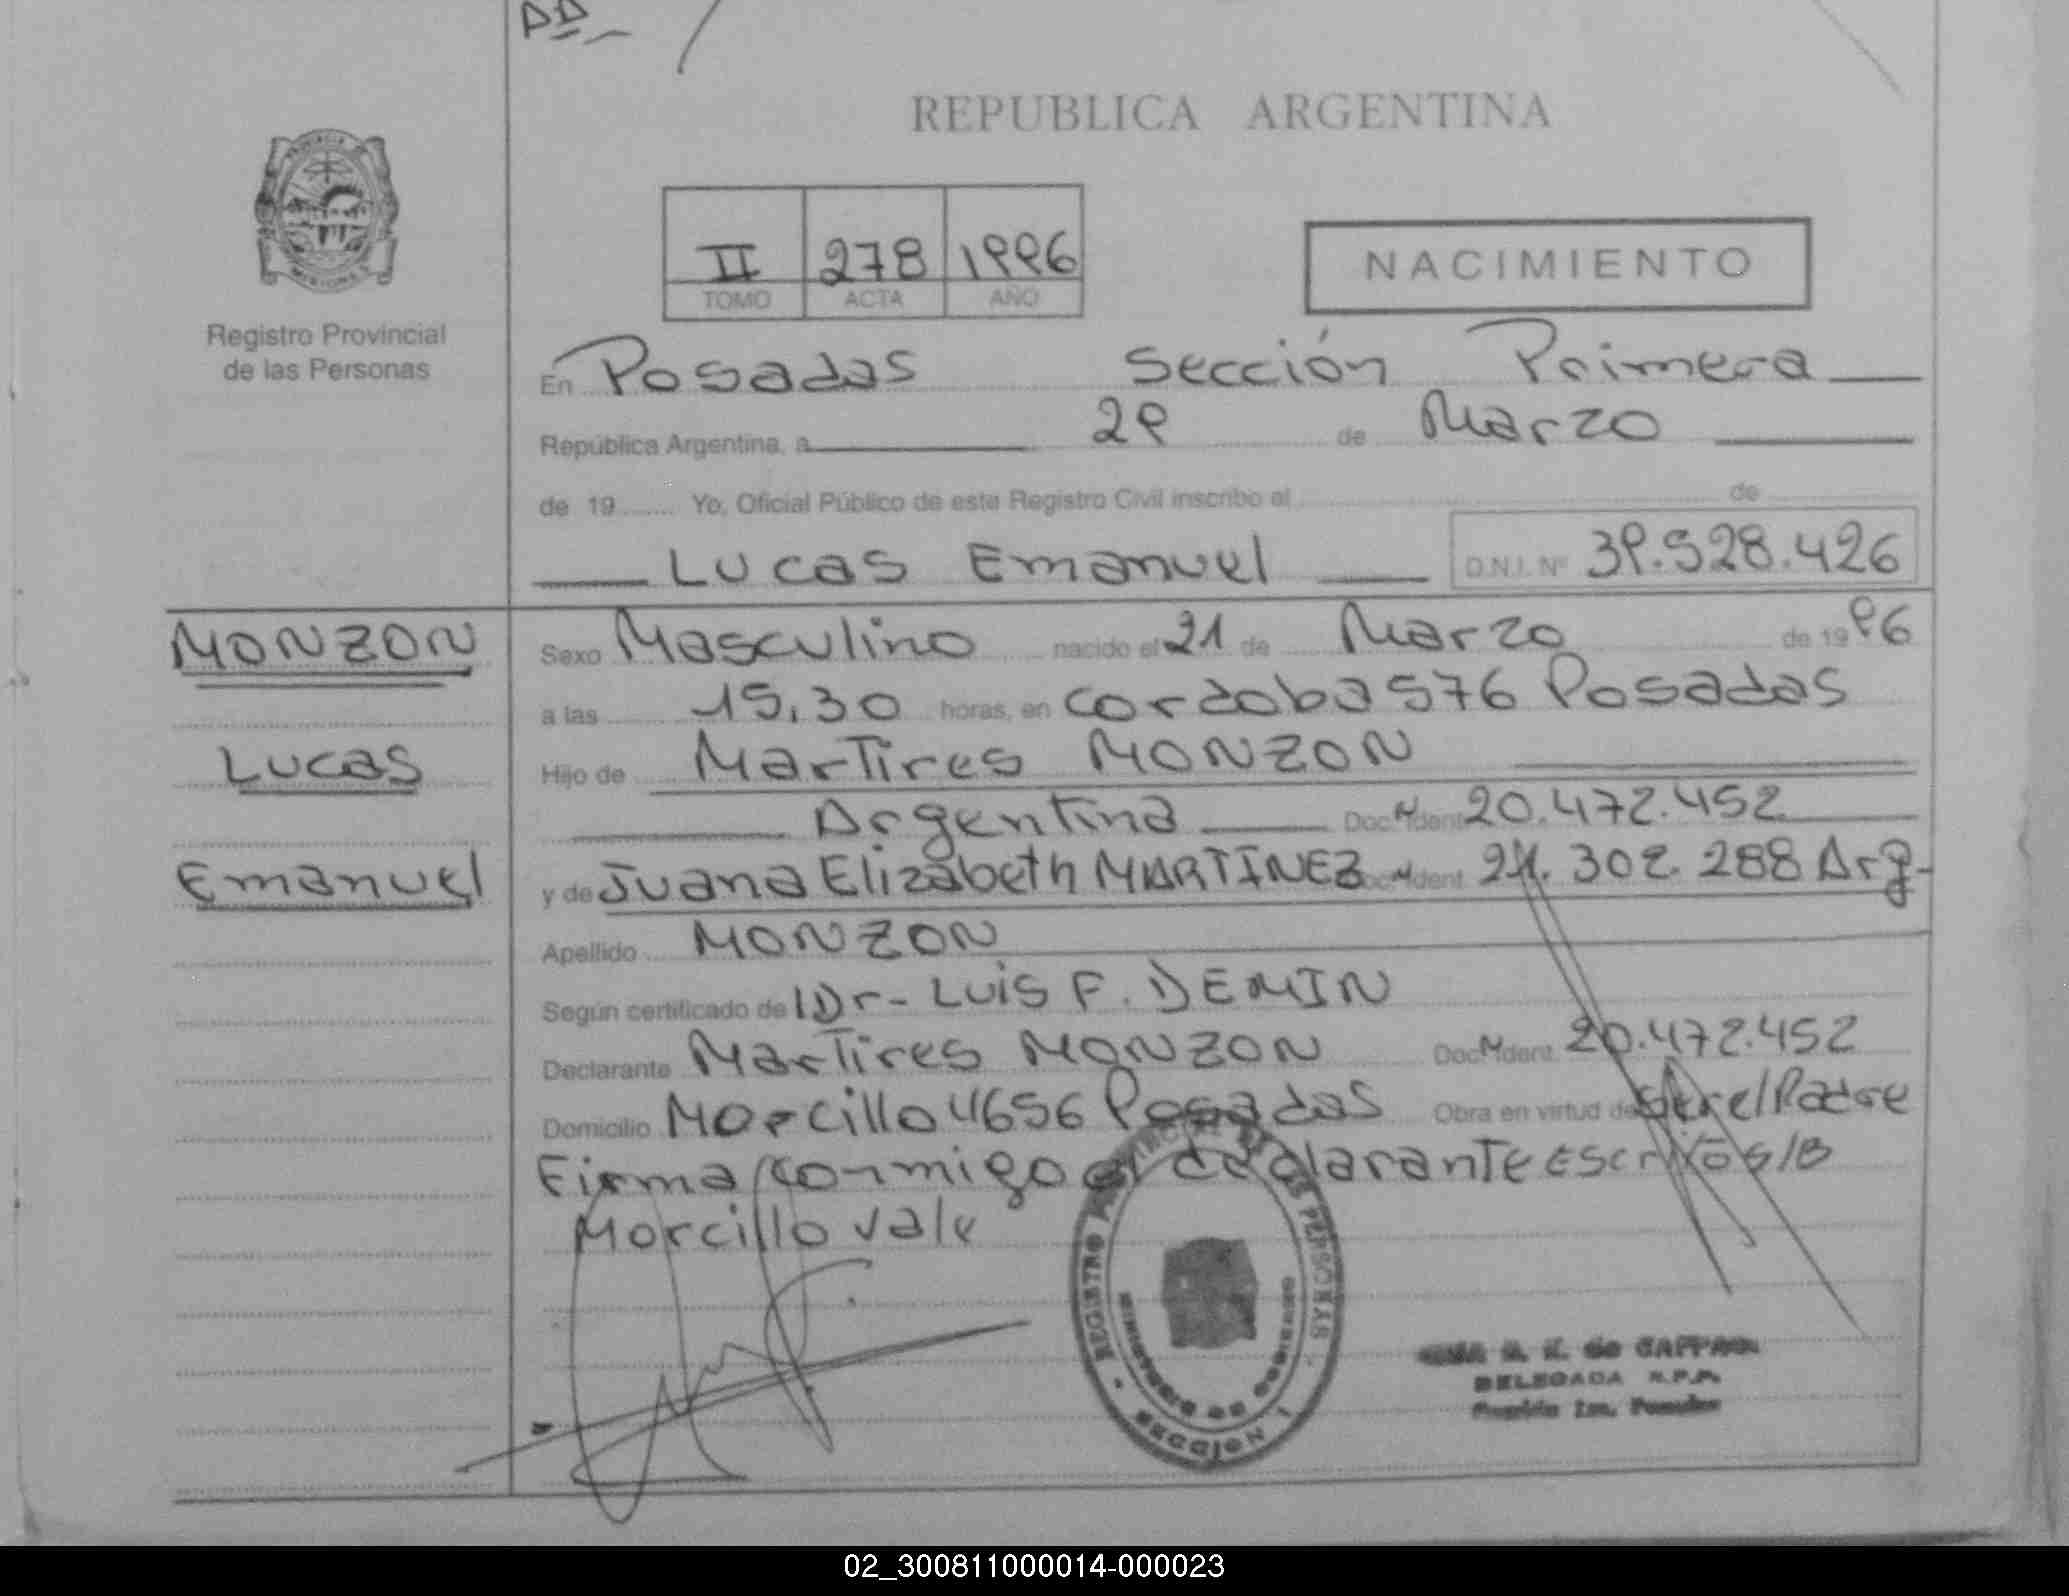 DD
REPUBLICA ARGENTINA
PROVINCIA DE
MISIONES
Registro Provincial
de las Personas
II 278 1996
TOMO ACTA AÑO
NACIMIENTO
En Posadas Sección Primera
República Argentina, a 29 de Marzo
de 19 Yo, Oficial Público de este Registro Civil inscribo al de
Lucas Emanuel D.N.I. Nº 39.528.426
MONZON
Lucas
Emanuel
Sexo Masculino nacido el 21 de Marzo de 1996
a las 15,30 horas, en Cordoba 576 Posadas
Hijo de Martires MONZON
Argentina Doc. Ident. 20.472.452
y de Juana Elizabeth MARTINEZ Doc. Ident. 21.302.288 Arg.
Apellido MONZON
Según certificado de Dr. Luis F. DEMIN
Declarante Martires MONZON Doc. Ident. 20.472.452
Domicilio Morcillo 4656 Posadas Obra en virtud de ser el Padre
Firma conmigo el declarante Escrito s/B
Morcillo vale
REGISTRO PROVINCIAL DE LAS PERSONAS
MINISTERIO DE GOBIERNO
SECCION 1
de
DELEGADA R.P.P.
Sección 1ra. Posadas
02_300811000014-000023